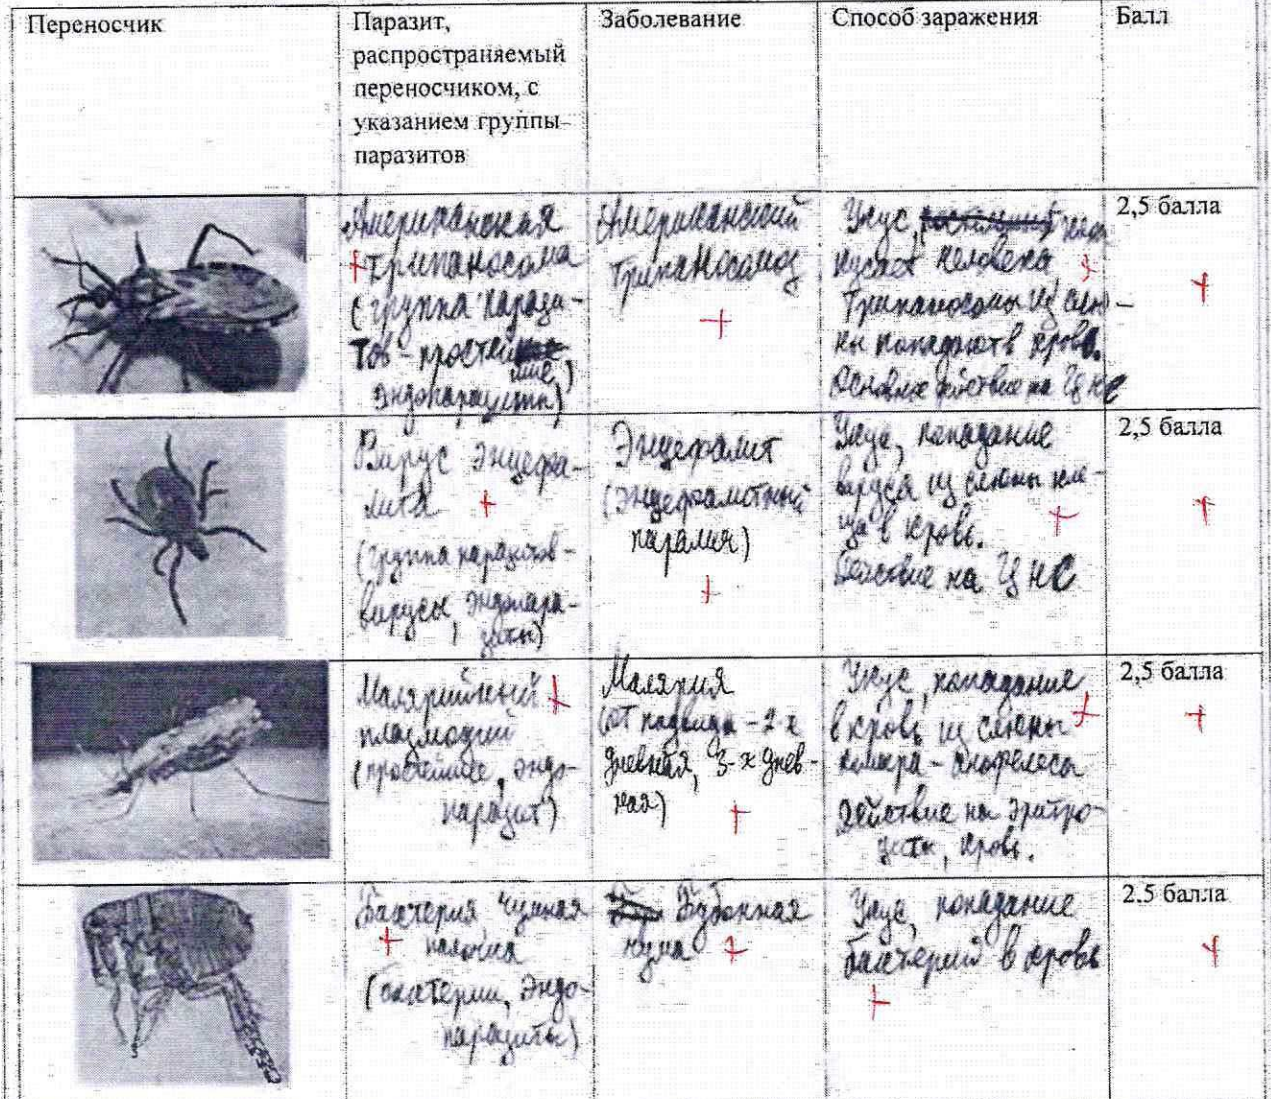 Переносчик
Паразит,
распространяемый
переносчиком, с
указанием группы
паразитов
Заболевание
Способ заражения
Балл
Американская
трипаносома
(группа парази-
тов - простей
шие,
эндопаразиты)
Американский
трипаносомоз
+
Укус,
кусает человека
трипаносомы из слю-
ны попадают в кровь.
Основное действие на ЦНС
2,5 балла
+
Вирус энцефа-
лита +
(группа паразитов -
вирусы, эндопара-
зиты)
Энцефалит
(энцефалитный
паралич)
+
Укус, попадание
вируса из слюны кле-
ща в кровь. +
Действие на ЦНС
2,5 балла
+
Малярийный +
плазмодий
(простейшие, эндо-
паразит)
Малярия
(от подвида - 2-х
дневная, 3-х днев-
ная) +
Укус, попадание
в кровь из слюны +
комара - анофелеса
Действие на эритро-
циты, кровь.
2,5 балла
+
Бактерия чумная
+ палочка
(бактерии, эндо-
паразиты)
Бубонная
чума +
Укус, попадание
бактерий в кровь
+
2,5 балла
+